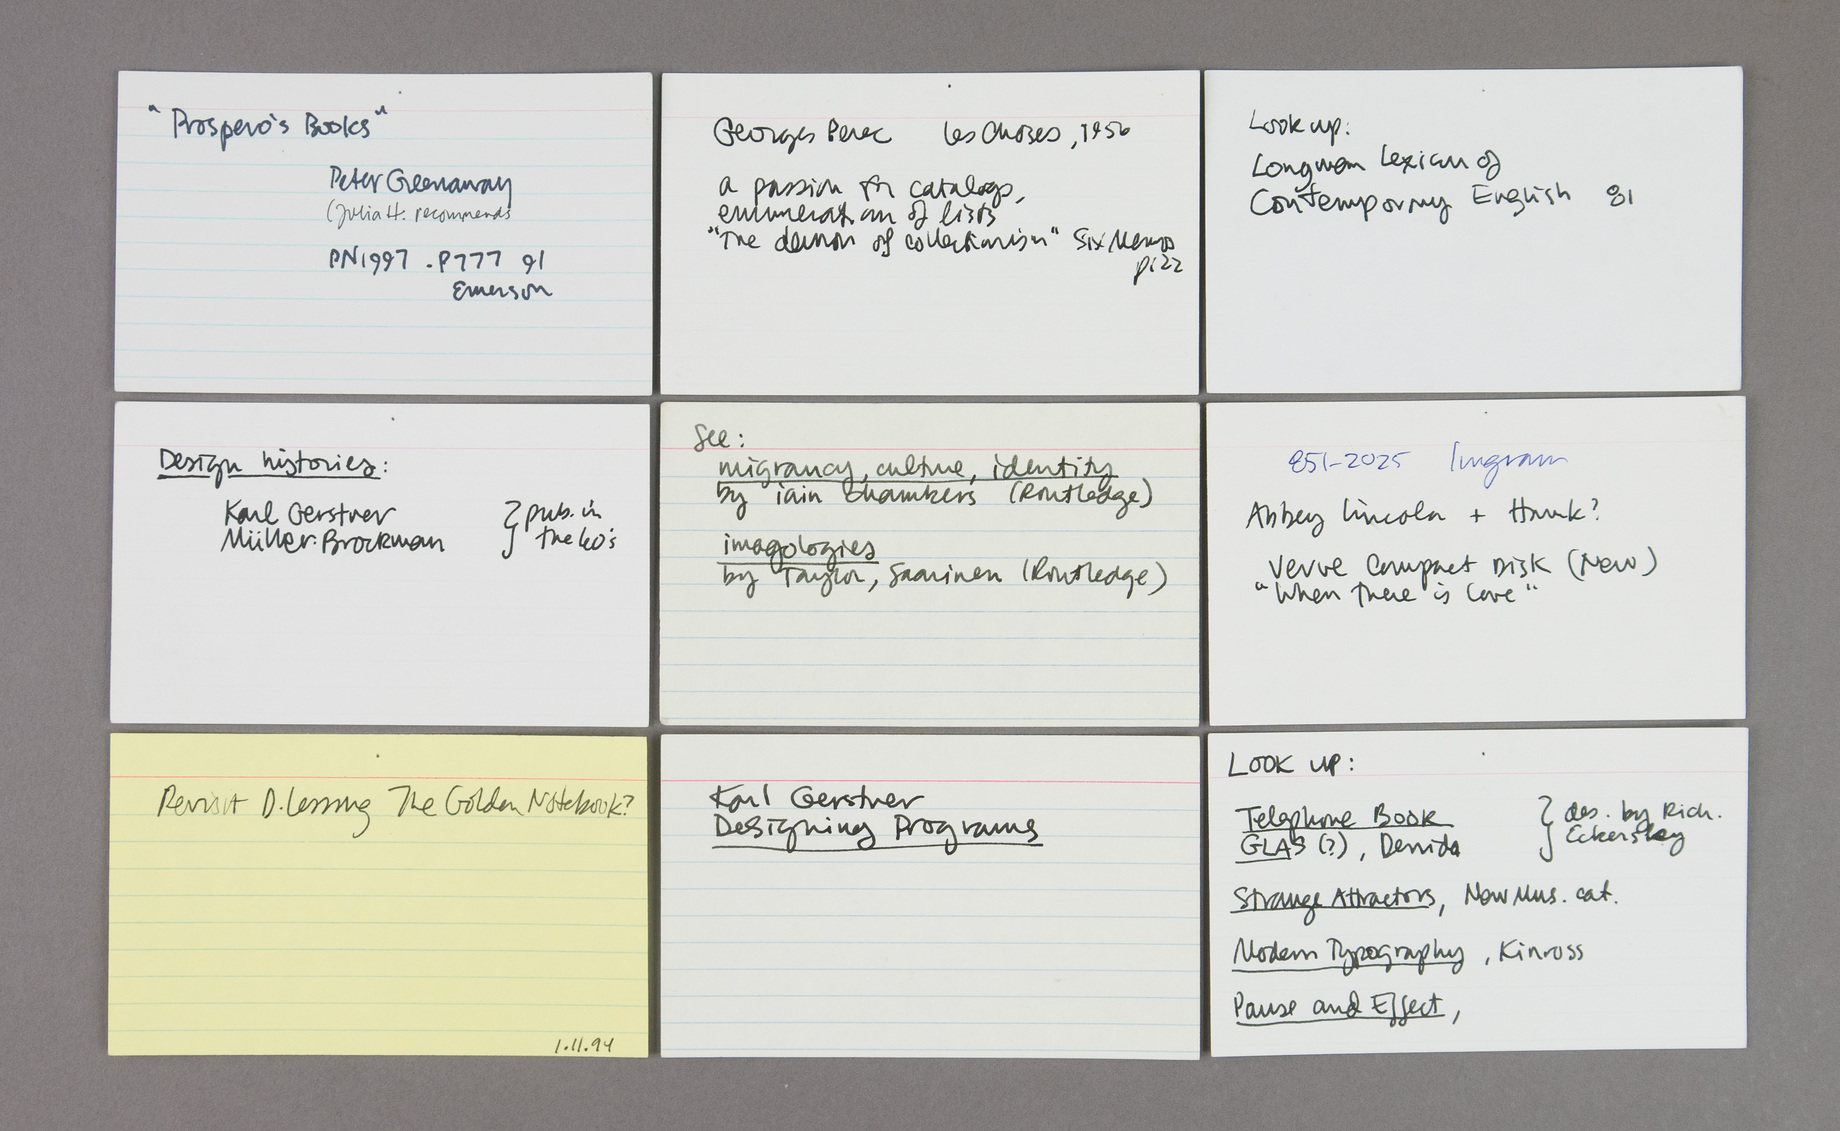 "Prospero's Books"
Peter Greenaway
(Julia H. recommends
PN1997 .P777 91
Emerson
Georges Perec Les Choses, 1956
a passion for catalogs,
enumeration of lists
"The demon of collectionism" Six Memos
p122
Look up:
Longman Lexicon of
Contemporary English 81
Design histories:
Karl Gerstner
Müller-Brockman
} pub. in
the 60's
See:
migrancy, culture, identity
by iain chambers (Routledge)
imagologies
by Taylor, Saarinen (Routledge)
851-2025 Ingram
Abbey Lincoln + Hank?
Verve Compact Disk (New)
"When There is Love"
Revisit D. Lessing The Golden Notebook?
1.11.94
Karl Gerstner
Designing Programs
Look up:
Telephone Book
GLAS (?), Derrida
} des. by Rich.
Eckersley
Strange Attractors, New Mus. cat.
Modern Typography, Kinross
Pause and Effect,